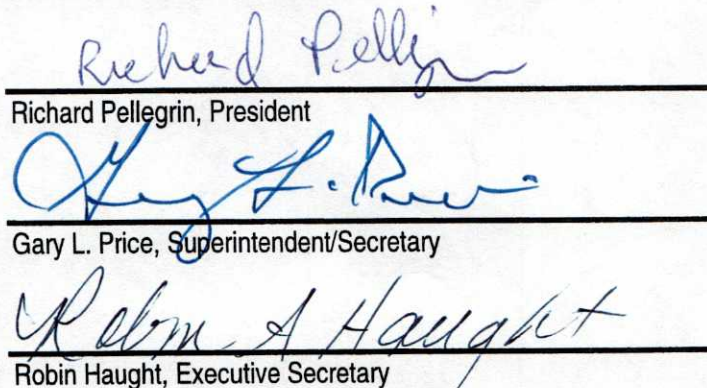 Richard Pellegrin
Richard Pellegrin, President
Gary L. Price
Gary L. Price, Superintendent/Secretary
Robin A Haught
Robin Haught, Executive Secretary